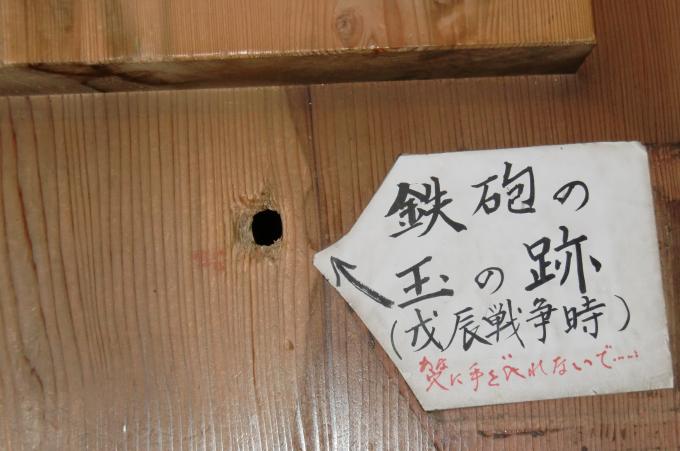 鉄砲の
玉の跡
(戊辰戦争時)
に手を入れないで……